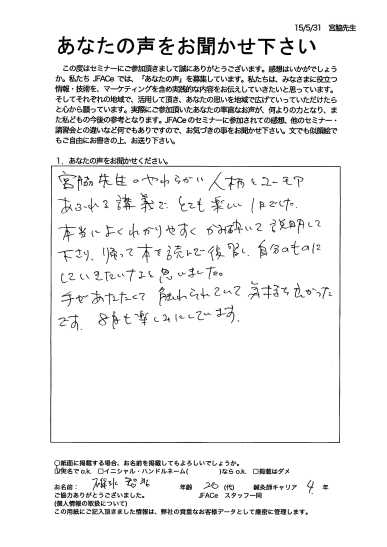 15/5/31 宮脇先生
あなたの声をお聞かせ下さい
この度はセミナーにご参加頂きまして誠にありがとうございます。感想はいかがでしょう
か。私たち JFACe では、「あなたの声」を募集しています。私たちは、みなさまに役立つ
情報・技術を、マーケティングを含め実践的な内容をお伝えしていきたいと思っています。
そしてそれぞれの地域で、活用して頂き、あなたの思いを地域で広げていっていただけたら
と心から願っています。実際にご参加頂いたあなたの率直なお声が、何よりの力となり、ま
た私どもの今後の参考となります。JFACeのセミナーに参加されての感想、他のセミナー・
講習会との違いなど何でもありですので、お気づきの事をお聞かせ下さい。文でも似顔絵で
もご自由にお書きの上、お送り下さい。
1．あなたの声をお聞かせください。
宮脇先生のやわらかい人柄とユーモア
あふれる講義で、とても楽しい1日でした。
本当によくわかりやすく かみ砕いて説明して
下さり、帰って本を読んで復習し、自分のものに
していきたいなと思いました。
手があたたくて 触れられていて 気持ち良かった
です。8月も楽しみにしています。
○紙面に掲載する場合、お名前を掲載してもよろしいでしょうか。
☑実名でo.k. □イニシャル・ハンドルネーム( )ならo.k. □掲載はダメ
お名前： 年齢 20 (代) 鍼灸師キャリア 4 年
ご協力ありがとうございました。 JFACe スタッフ一同
(個人情報の取扱について)
この用紙にご記入頂きました情報は、弊社の貴重なお客様データとして厳密に管理します。